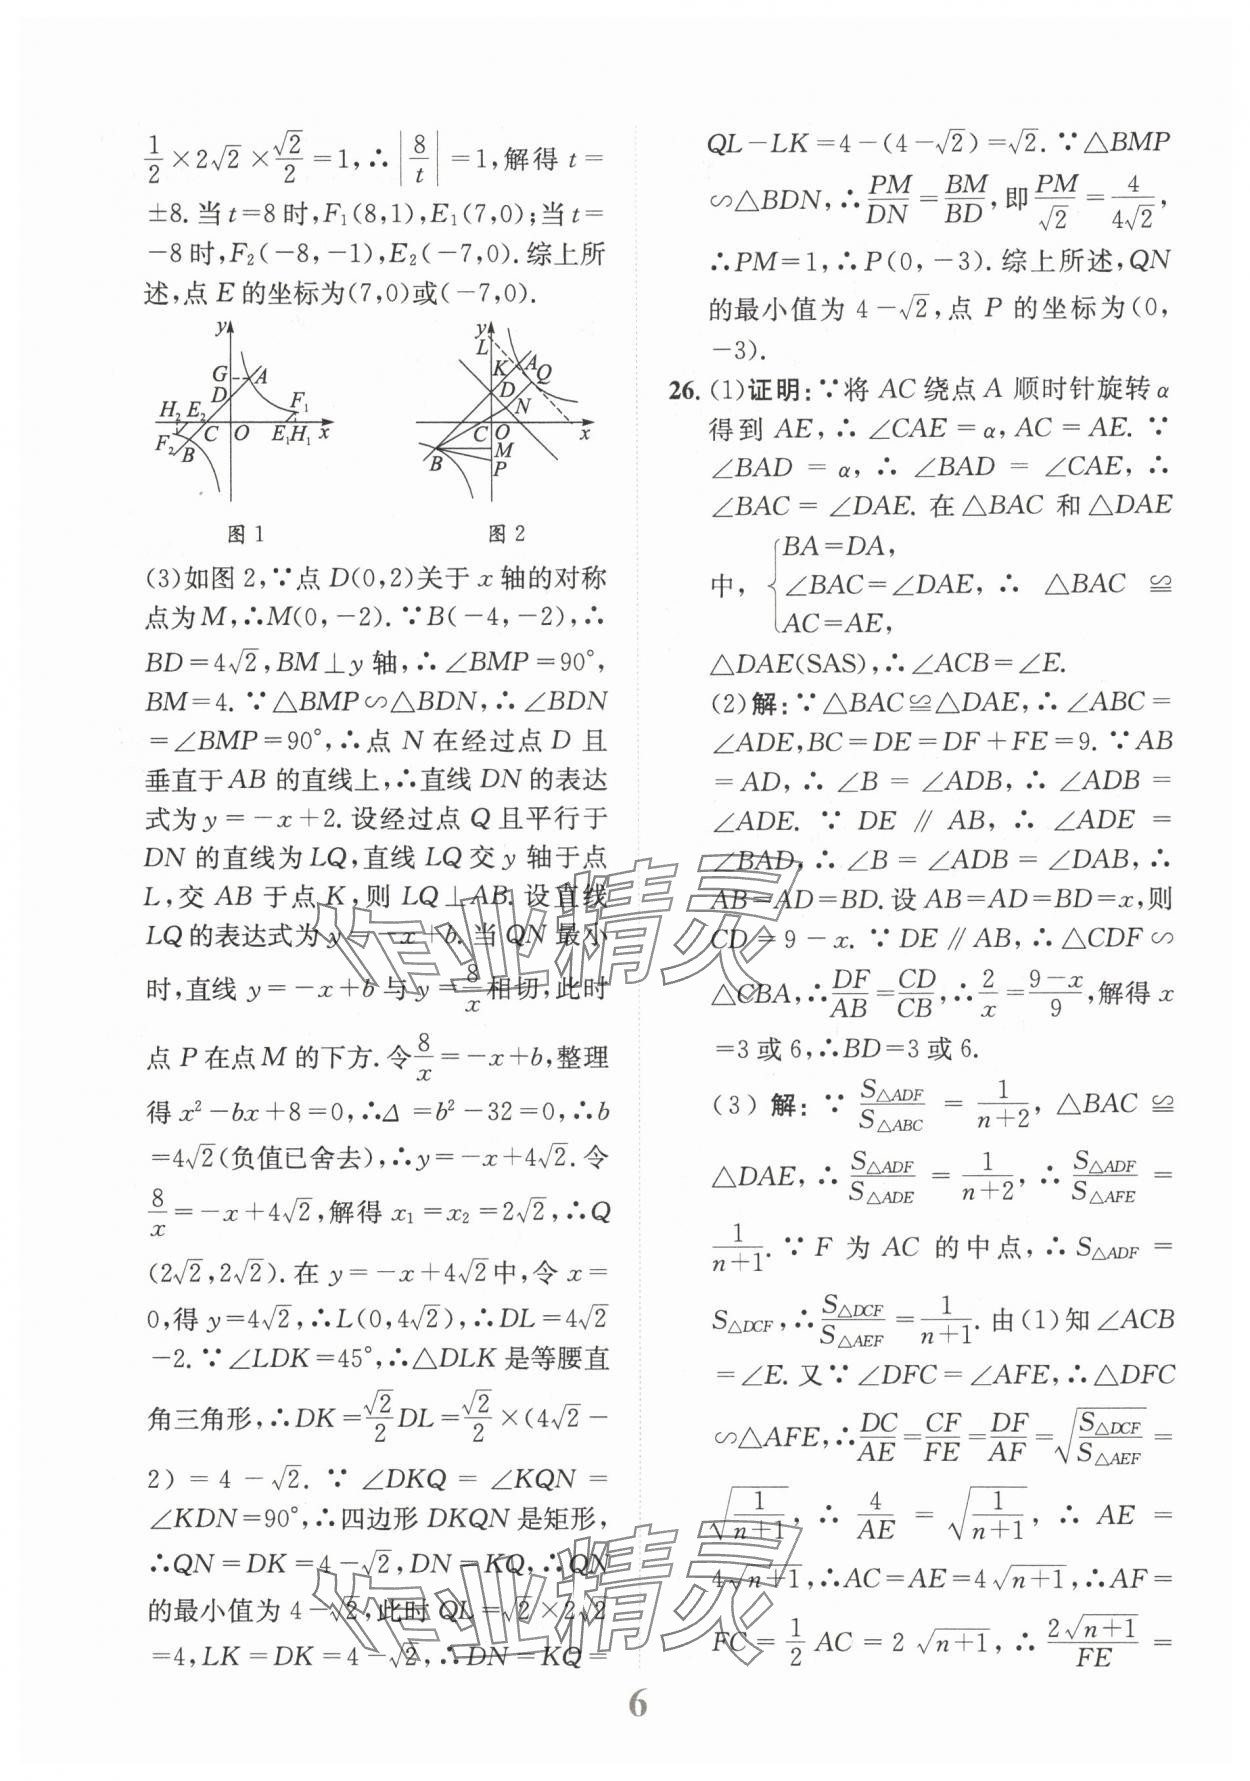 1/2×2√2×√2/2=1,∴|8/t|=1,解得 t=
±8.当t=8时,F₁(8,1),E₁(7,0);当t=
−8时,F₂(−8,−1),E₂(−7,0).综上所
述,点 E 的坐标为(7,0)或(−7,0).
y G A D H₂ E₂ F₁ C O E₁ H₁ x F₂ B
图1
y L K A Q D N C O x B M P
图2
(3)如图2,∵点D(0,2)关于x轴的对称
点为M,∴M(0,−2).∵B(−4,−2),∴
BD=4√2,BM⊥y轴,∴∠BMP=90°,
BM=4.∵△BMP∽△BDN,∴∠BDN
=∠BMP=90°,∴点 N 在经过点 D 且
垂直于AB的直线上,∴直线DN的表达
式为y=−x+2.设经过点Q且平行于
DN的直线为LQ,直线LQ交y轴于点
L,交AB于点K,则LQ⊥AB.设直线
LQ的表达式为y=−x+b.当QN最小
时,直线y=−x+b与y=8/x相切,此时
点P在点M的下方.令8/x=−x+b,整理
得x²−bx+8=0,∴Δ=b²−32=0,∴b
=4√2(负值已舍去),∴y=−x+4√2.令
8/x=−x+4√2,解得x₁=x₂=2√2,∴Q
(2√2,2√2).在y=−x+4√2中,令x=
0,得y=4√2,∴L(0,4√2),∴DL=4√2
−2.∵∠LDK=45°,∴△DLK是等腰直
角三角形,∴DK=√2/2DL=√2/2×(4√2−
2)=4−√2.∵∠DKQ=∠KQN=
∠KDN=90°,∴四边形DKQN是矩形,
∴QN=DK=4−√2,DN=KQ,∴QN
的最小值为4−√2,此时QL=√2×2√2
=4,LK=DK=4−√2,∴DN=KQ=
QL−LK=4−(4−√2)=√2.∵△BMP
∽△BDN,∴PM/DN=BM/BD,即PM/√2=4/4√2,
∴PM=1,∴P(0,−3).综上所述,QN
的最小值为4−√2,点P的坐标为(0,
−3).
26.(1)证明:∵将AC绕点A顺时针旋转α
得到AE,∴∠CAE=α,AC=AE.∵
∠BAD=α,∴∠BAD=∠CAE,∴
∠BAC=∠DAE.在△BAC和△DAE
BA=DA,
中,{∠BAC=∠DAE,∴△BAC≌
AC=AE,
△DAE(SAS),∴∠ACB=∠E.
(2)解:∵△BAC≌△DAE,∴∠ABC=
∠ADE,BC=DE=DF+FE=9.∵AB
=AD,∴∠B=∠ADB,∴∠ADB=
∠ADE.∵DE∥AB,∴∠ADE=
∠BAD,∴∠B=∠ADB=∠DAB,∴
AB=AD=BD.设AB=AD=BD=x,则
CD=9−x.∵DE∥AB,∴△CDF∽
△CBA,∴DF/AB=CD/CB,∴2/x=(9−x)/9,解得x
=3或6,∴BD=3或6.
(3)解:∵S△ADF/S△ABC=1/(n+2),△BAC≌
△DAE,∴S△ADF/S△ADE=1/(n+2),∴S△ADF/S△AFE=
1/(n+1).∵F为AC的中点,∴S△ADF=
S△DCF,∴S△DCF/S△AEF=1/(n+1).由(1)知∠ACB
=∠E.又∵∠DFC=∠AFE,∴△DFC
∽△AFE,∴DC/AE=CF/FE=DF/AF=√(S△DCF/S△AEF)=
√(1/(n+1)),∴4/AE=√(1/(n+1)),∴AE=
4√(n+1),∴AC=AE=4√(n+1),∴AF=
FC=1/2AC=2√(n+1),∴2√(n+1)/FE=
作业精灵
作业精灵
6